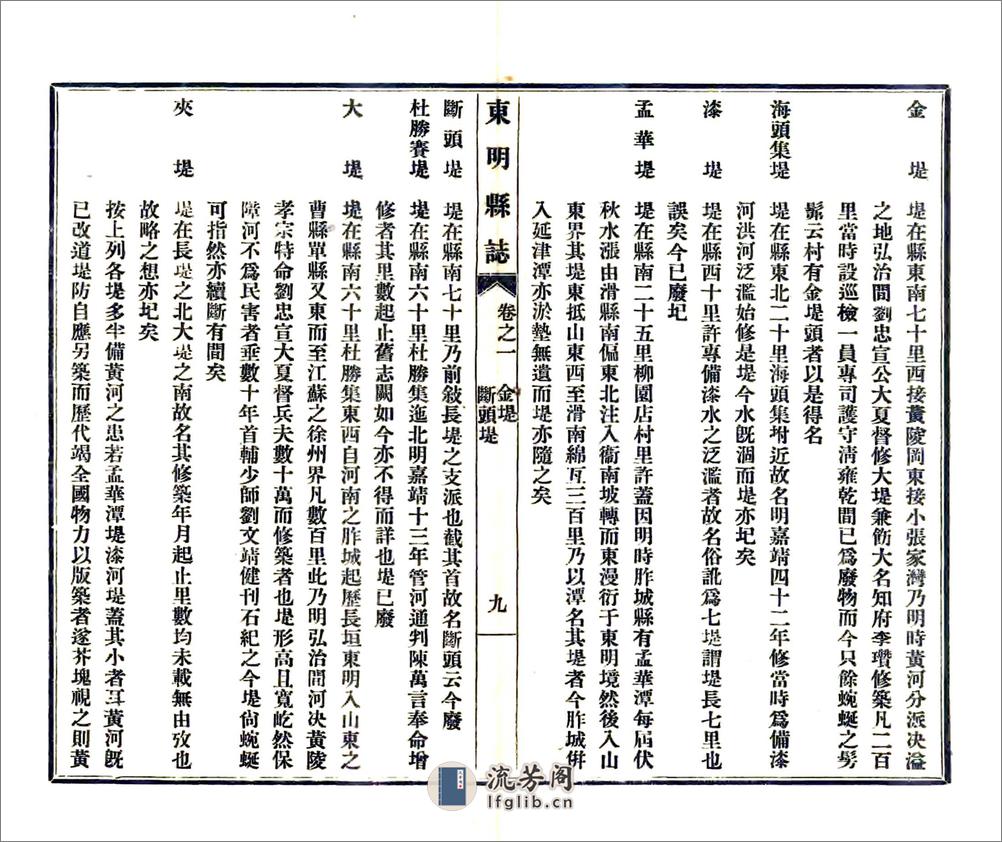 金堤　堤在縣東南七十里西接黃陵岡東接小張家灣乃明時黃河分派決溢
之地弘治間劉忠宣公大夏督修大堤兼飭大名知府李瓚修築凡二百
里當時設巡檢一員專司護守淸雍乾間已爲廢物而今只餘蜿蜒之髣
髴云村有金堤頭者以是得名
海頭集堤　堤在縣東北二十里海頭集附近故名明嘉靖四十二年修當時爲備漆
河洪河泛濫始修是堤今水旣涸而堤亦圮矣
漆堤　堤在縣西十里許專備漆水之泛濫者故名俗訛爲七堤謂堤長七里也
誤矣今已廢圮
孟華堤　堤在縣南二十五里柳園店村里許蓋因明時胙城縣有孟華潭每屆伏
秋水漲由滑縣南偏東北注入衞南坡轉而東漫衍于東明境然後入山
東界其堤東抵山東西至滑南綿亙三百里乃以潭名其堤者今胙城倂
入延津潭亦淤墊無遺而堤亦隨之矣
東明縣誌
卷之一　金堤　斷頭堤
九
斷頭堤　堤在縣南七十里乃前敍長堤之支派也截其首故名斷頭云今廢
杜勝賽堤　堤在縣南六十里杜勝集迤北明嘉靖十三年管河通判陳萬言奉命增
修者其里數起止舊志闕如今亦不得而詳也堤已廢
大堤　堤在縣南六十里杜勝集東西自河南之胙城起歷長垣東明入山東之
曹縣單縣又東而至江蘇之徐州界凡數百里此乃明弘治間河决黃陵
孝宗特命劉忠宣大夏督兵夫數十萬而修築者也堤形高且寬屹然保
障河不爲民害者垂數十年首輔少師劉文靖健刊石紀之今堤尙蜿蜒
可指然亦續斷有間矣
夾堤　堤在長堤之北大堤之南故名其修築年月起止里數均未載無由攷也
故略之想亦圮矣
按上列各堤多半備黃河之患若孟華潭堤漆河堤蓋其小者耳黃河旣
已改道堤防自應另築而歷代竭全國物力以版築者遂芥塊視之則黃
流芳阁
lfglib.cn